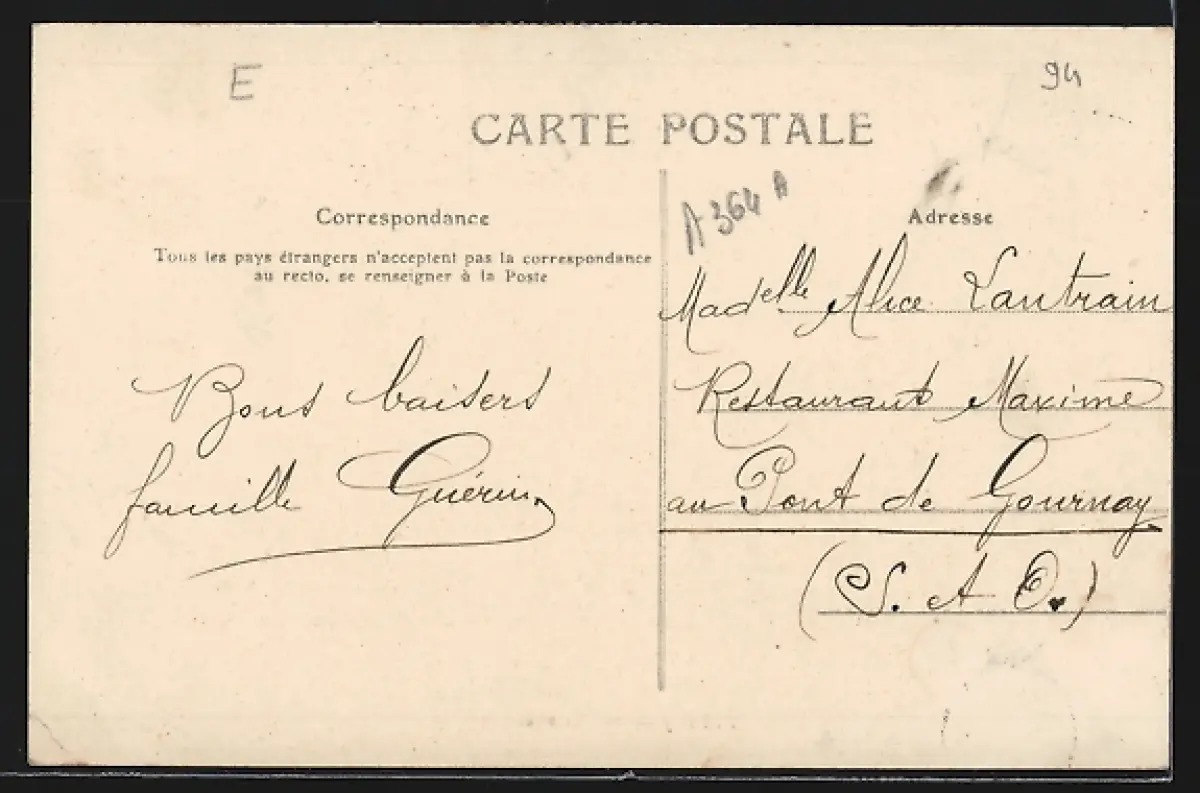 E
94
CARTE POSTALE
A 364 A
Correspondance
Tous les pays étrangers n'acceptent pas la correspondance
au recto, se renseigner à la Poste
Bons baisers
famille Guérin
Adresse
Madelle Alice Lautrain
Restaurant Maxime
au Pont de Gournay
(S. et O.)